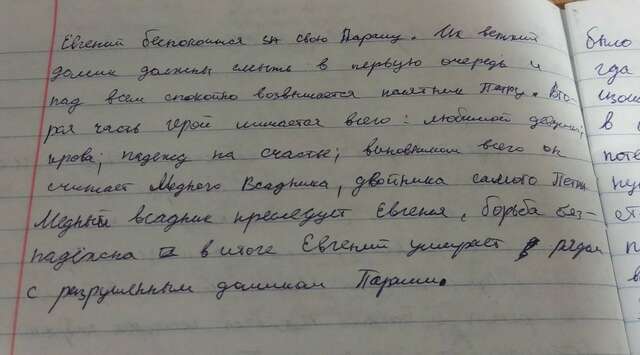 Евгений беспокоился за свою Парашу. Их ветхий было
домик должны смыть в первую очередь и гда
над всем спокойно возвышается памятник Петру. Вто-
рая часть герой лишается всего: любимой девушки, в
крова; надежд на счастье; виновником всего он поте
считает Медного Всадника, двойника самого Петра
Медный всадник преследует Евгения, борьба без-
надёжна в итоге Евгений умирает рядом
с разрушенным домиком Параши.